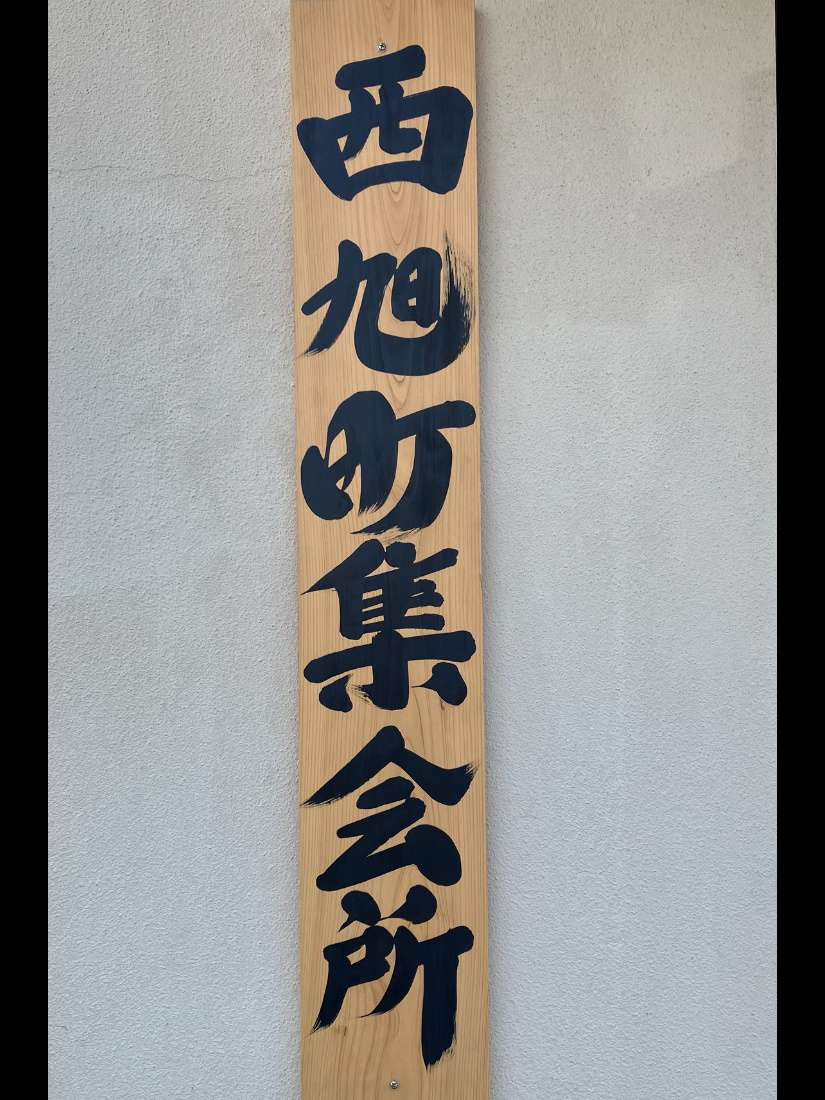 西旭町集会所